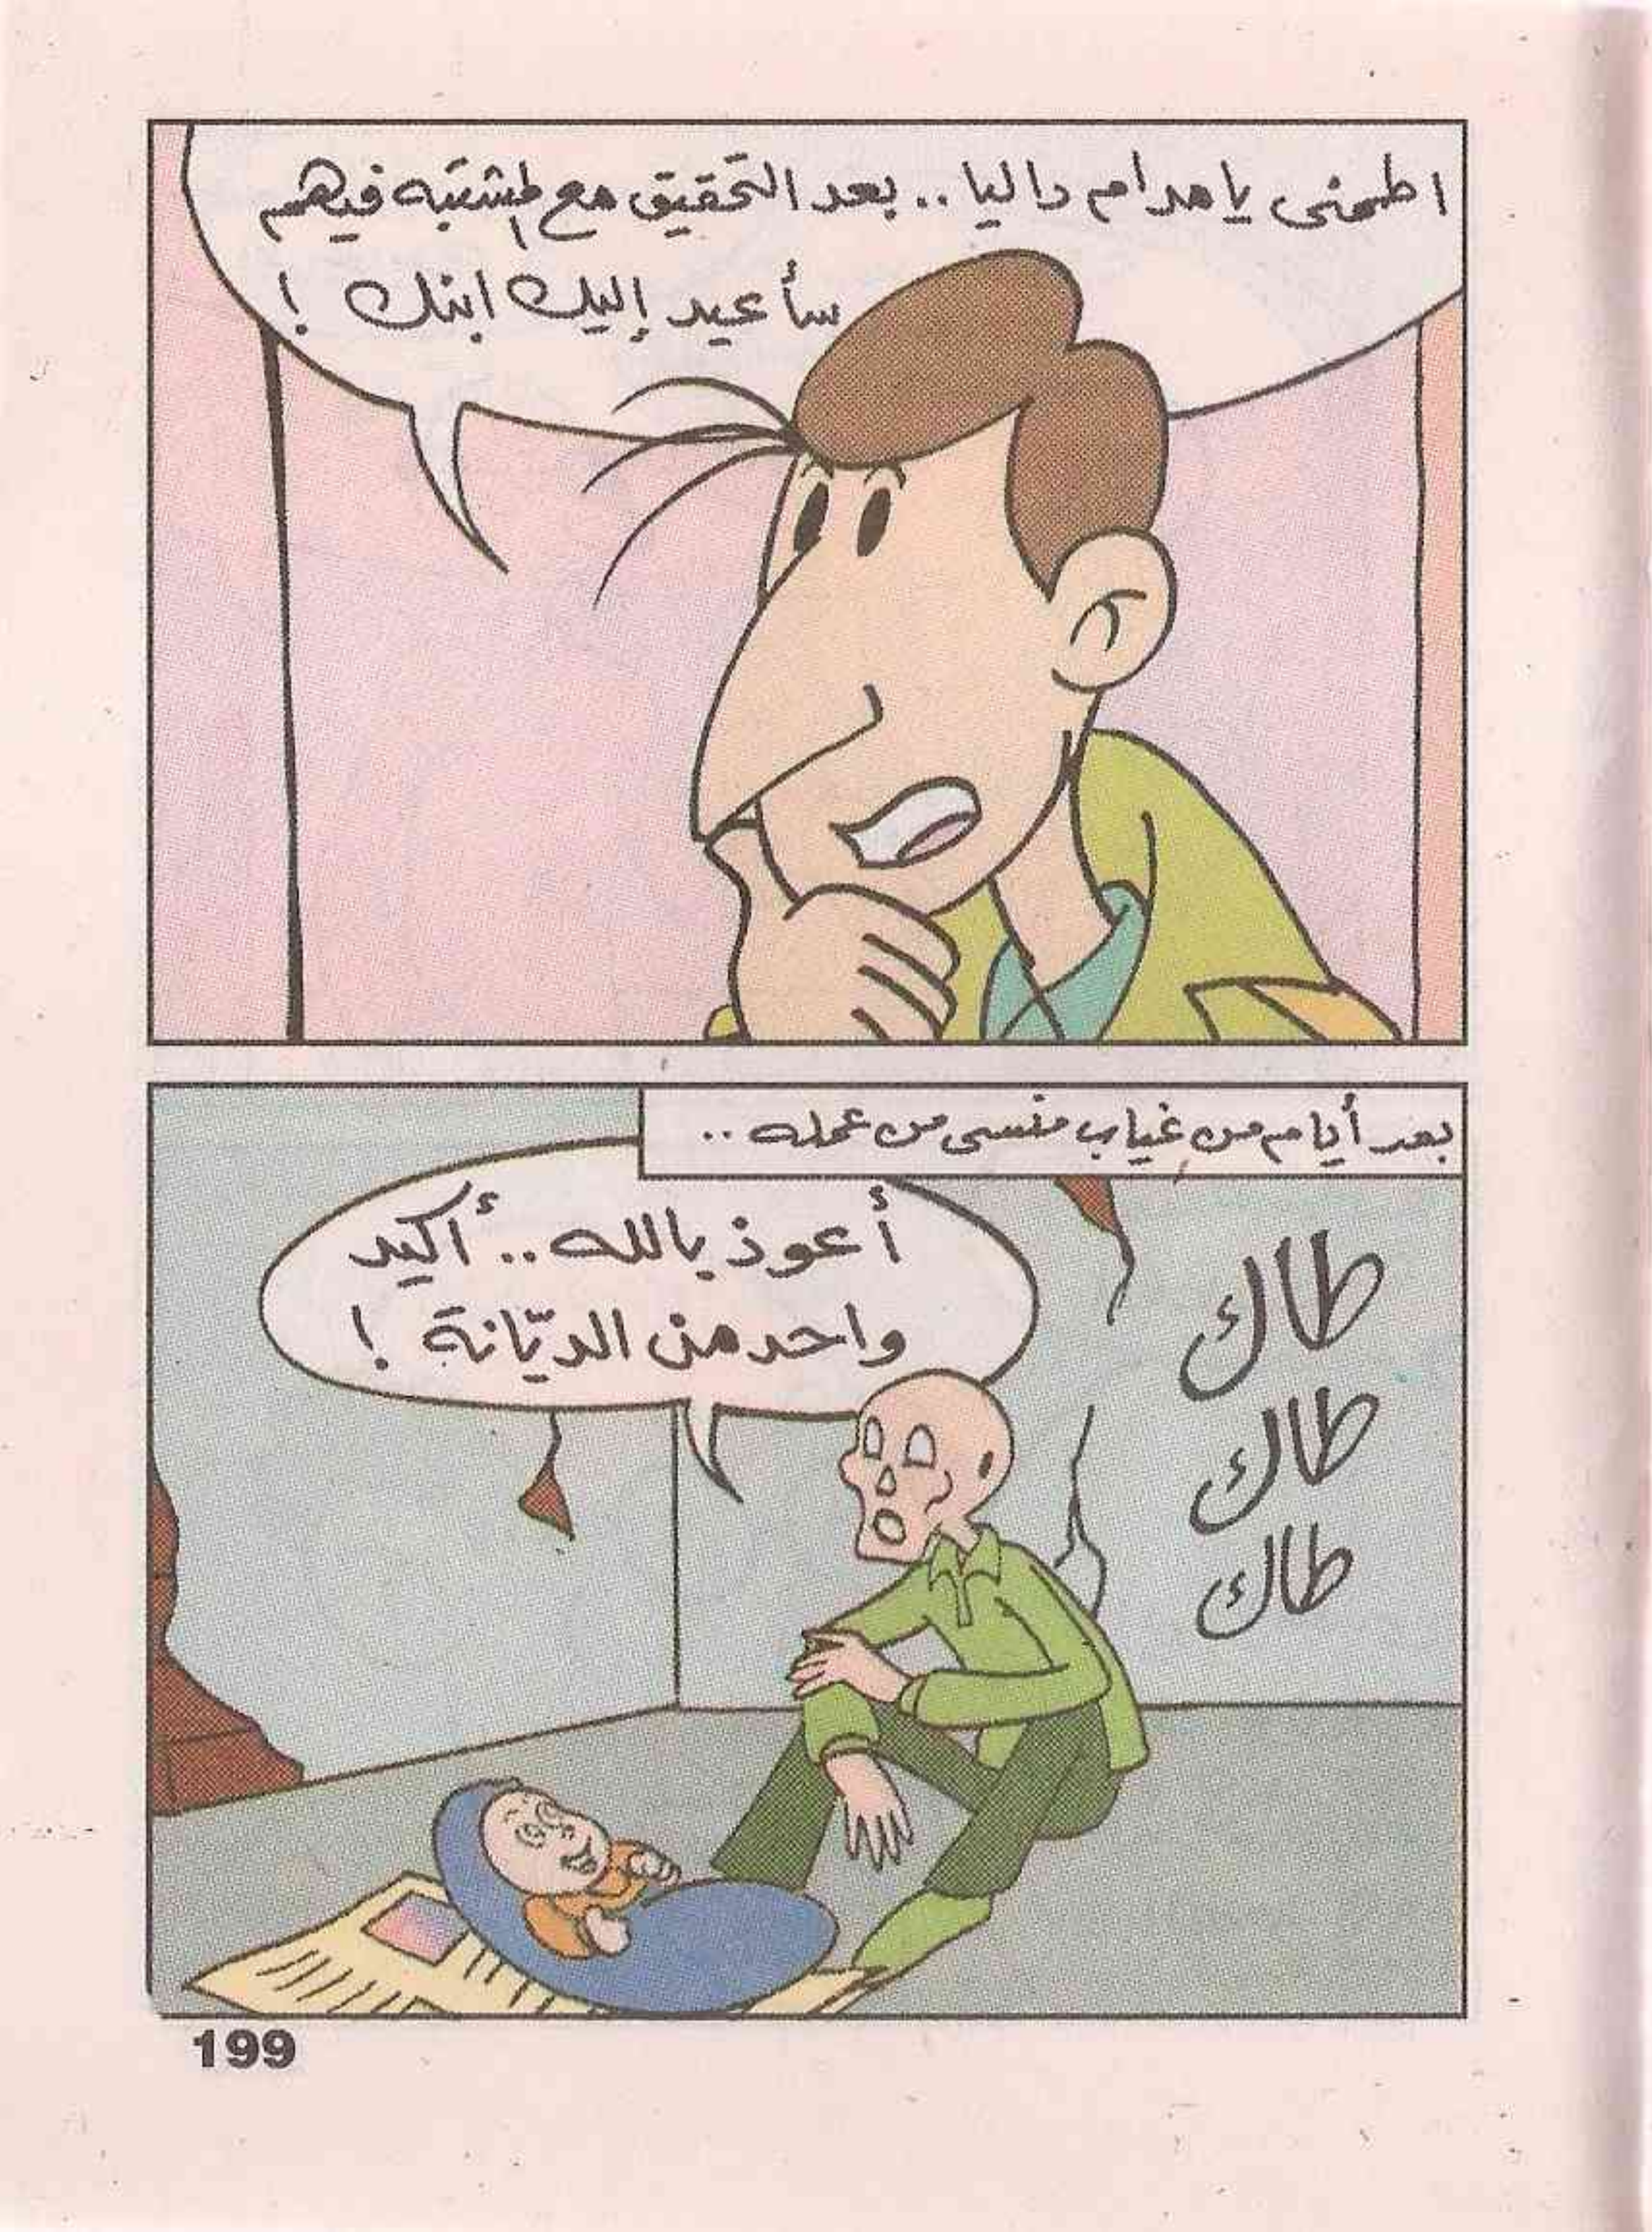 اطمئنى يا مدام داليا .. بعد التحقيق مع المشتبه فيهم
سأعيد إليك ابنك !
بعد أيام من غياب منسى من عمله ..
أعوذ بالله .. أكيد
واحد من الديّانة !
طاك
طاك
طاك
199